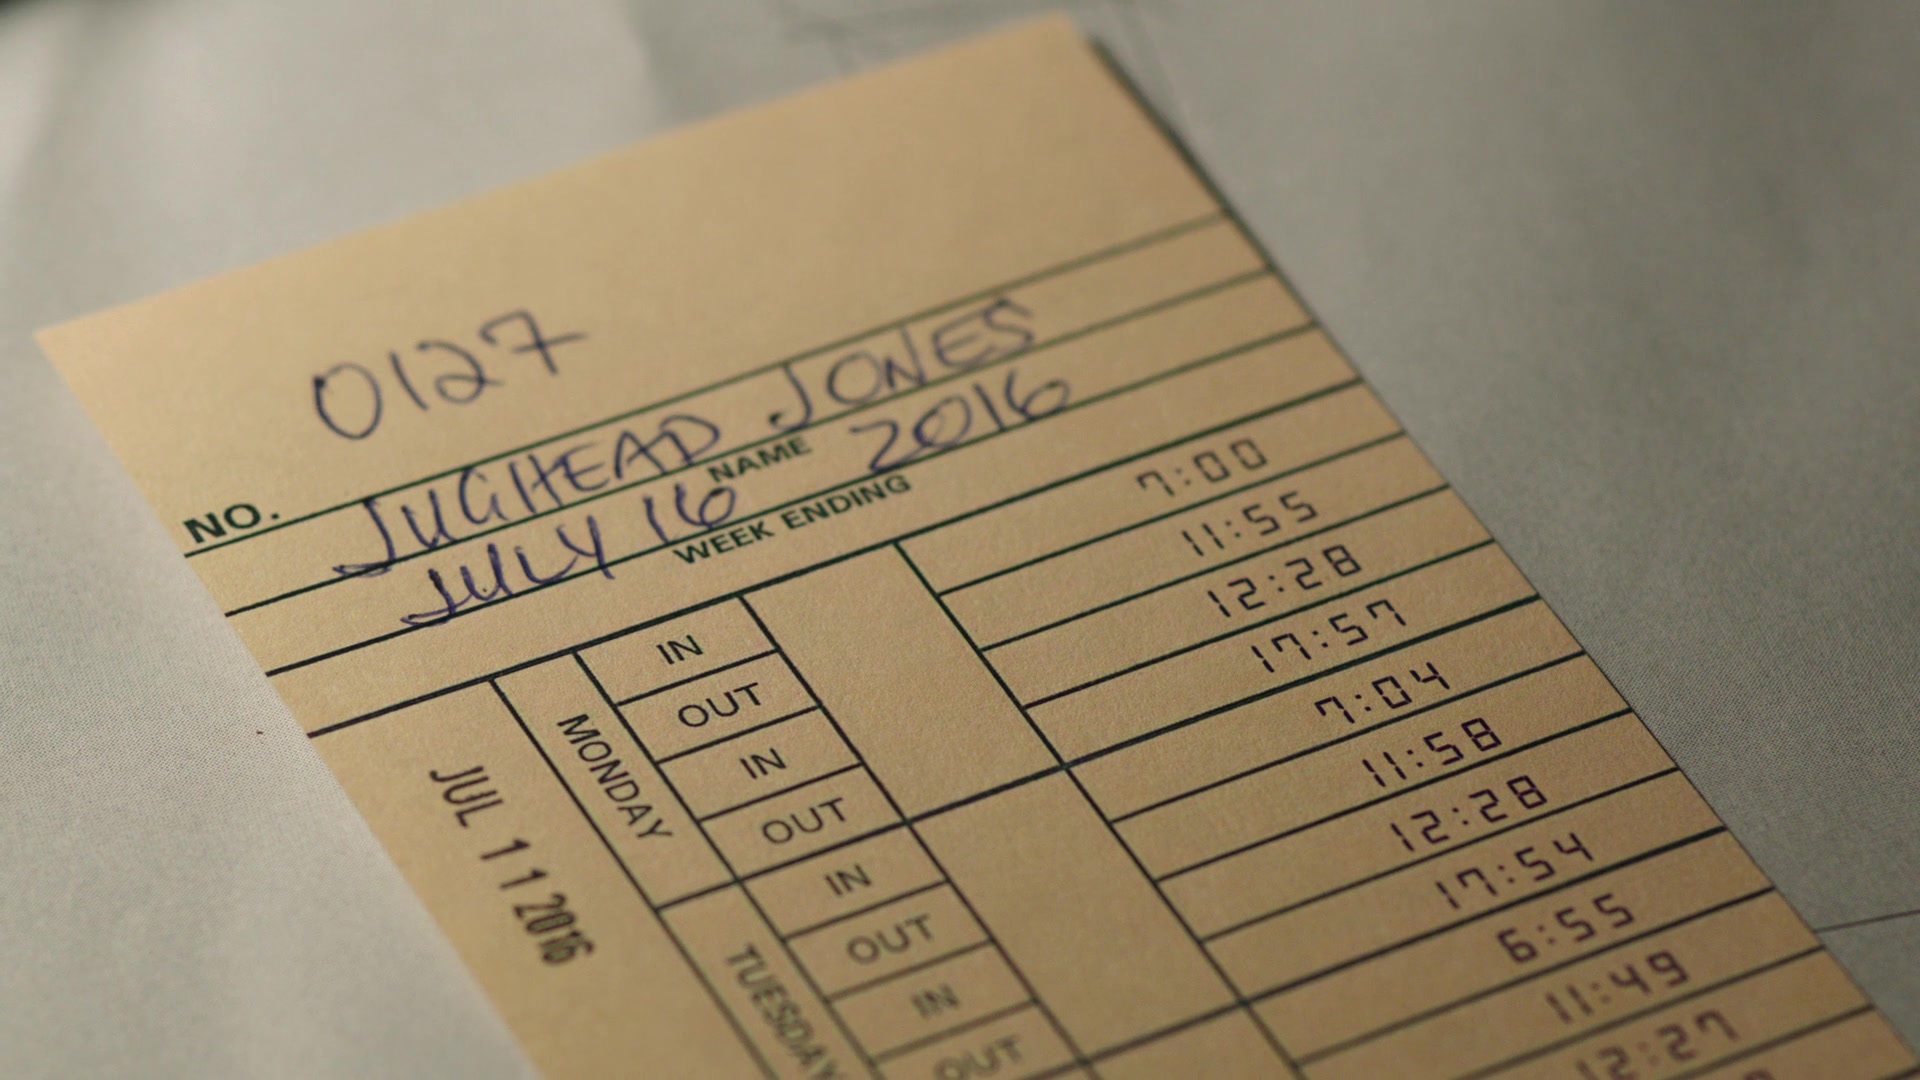 0127
NO.
JUGHEAD JONES
NAME
JULY 16 2016
WEEK ENDING
JUL 11 2016
MONDAY
IN 7:00
OUT 11:55
IN 12:28
OUT 17:57
TUESDAY
IN 7:04
OUT 11:58
IN 12:28
OUT 17:54
6:55
11:49
12:27